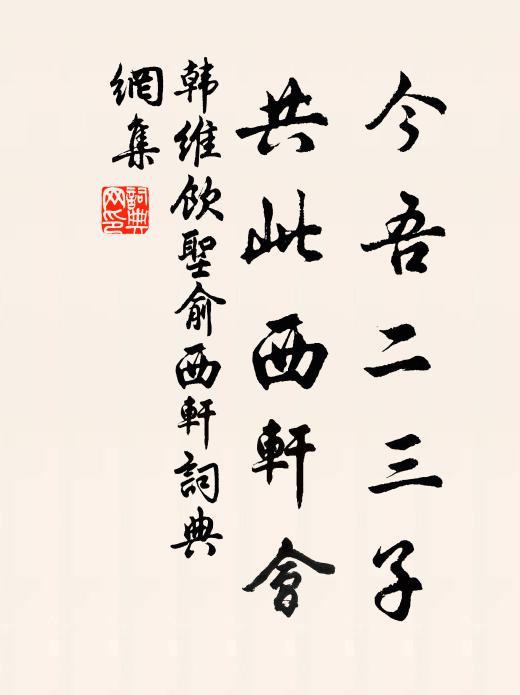 今吾二三子
共此西軒會
韩維飲聖俞西軒詞典
網集
詞典
网印